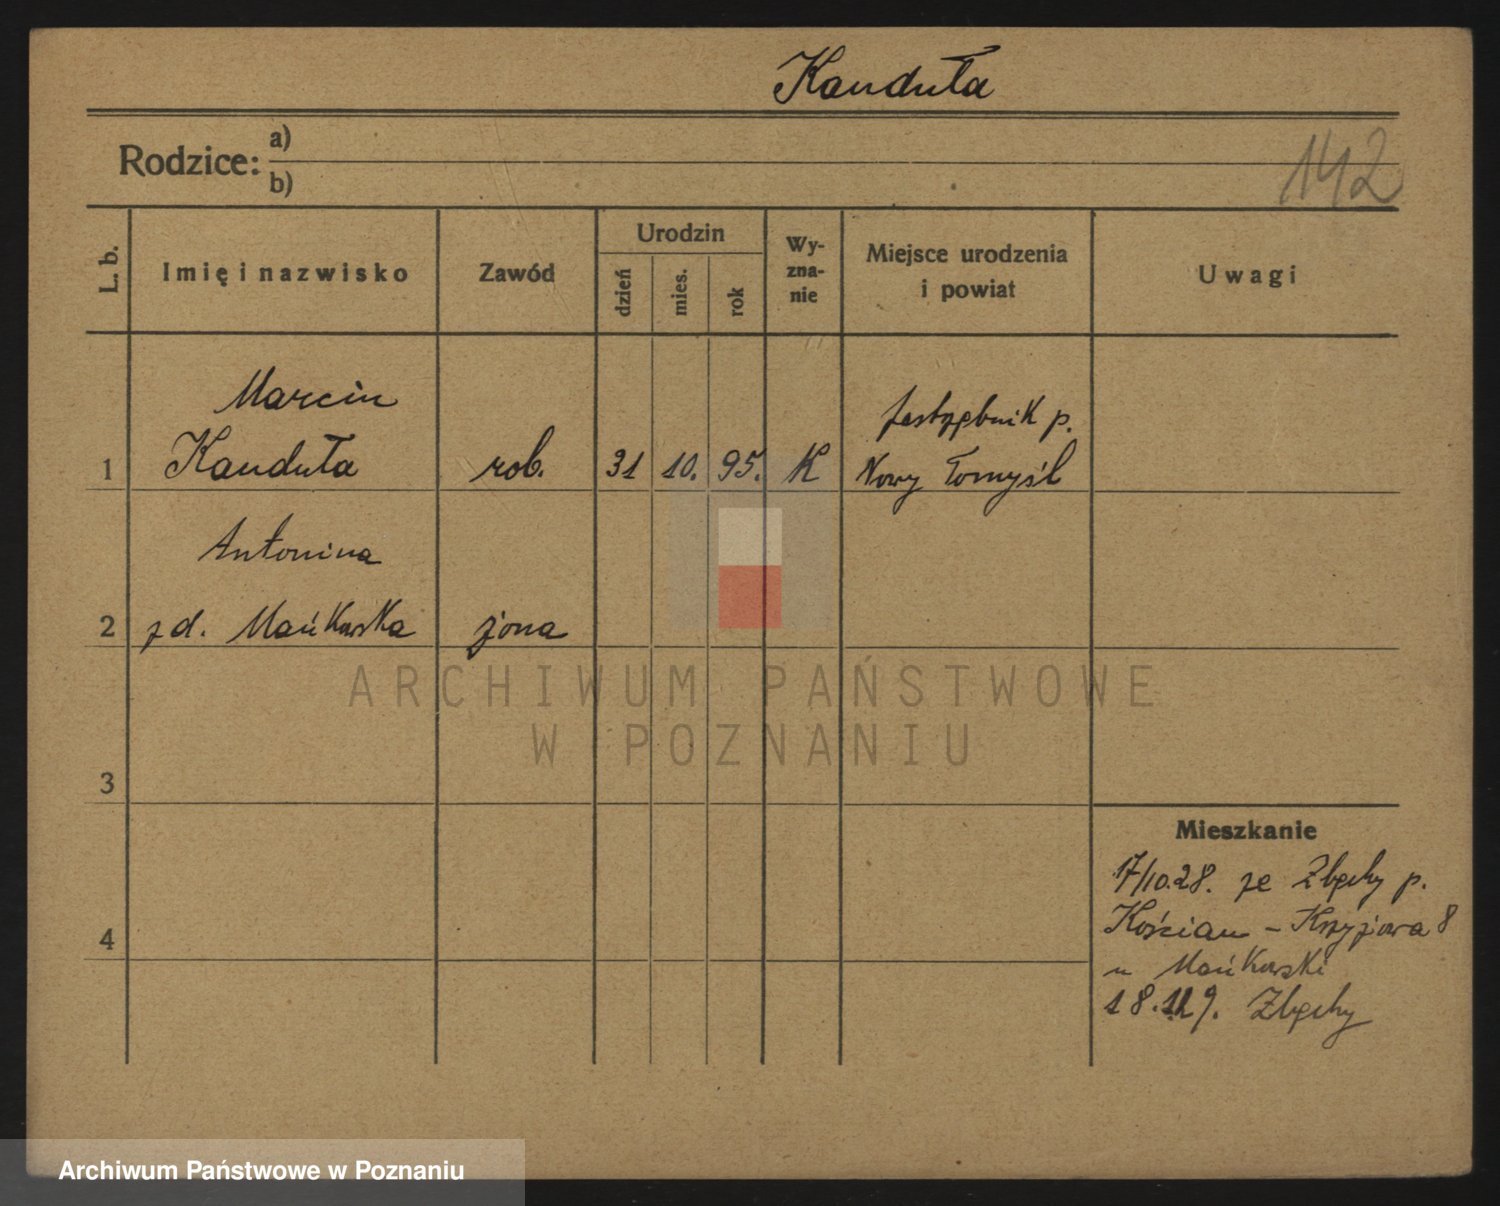 Kanduła
Rodzice: a)
b)
142
L. b.
Imię i nazwisko
Zawód
Urodzin
dzień
mies.
rok
Wy-
zna-
nie
Miejsce urodzenia
i powiat
Uwagi
Marcin
1 Kanduła rob. 31 10. 95. K
Jastrzębnik p.
Nowy Tomyśl
Antonina
2 z d. Mańkowska żona
3
4
Mieszkanie
17/10.28. ze Zbęchy p.
Kościan - Krzyżowa 8
u Mańkowski
18. Zbęchy
ARCHIWUM PAŃSTWOWE
W POZNANIU
Archiwum Państwowe w Poznaniu